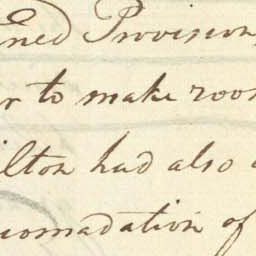 ned Provision
r to make roo
ilton had also
comadation of